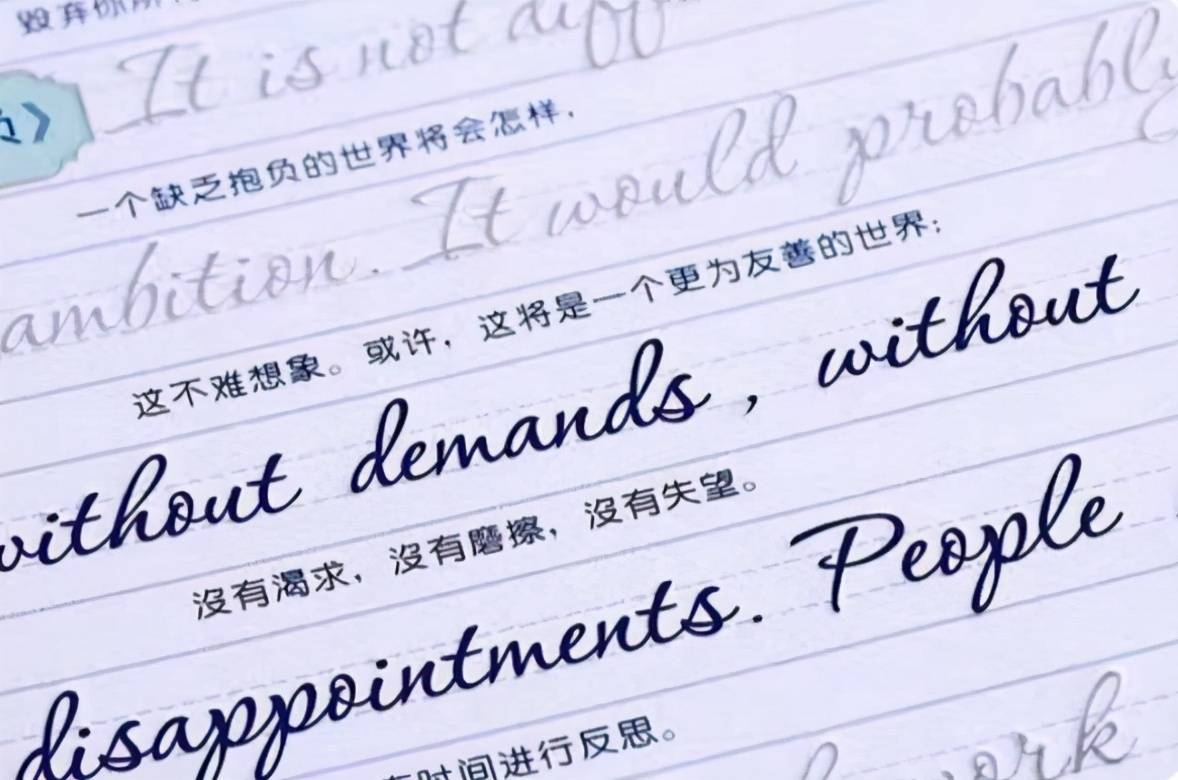 毁弃你所
It is not diff
负》
一个缺乏抱负的世界将会怎样，
ambition. It would probably
这不难想象。或许，这将是一个更为友善的世界：
without demands, without
沒有渴求，沒有磨擦，沒有失望。
disappointments. People
时间进行反思。
work